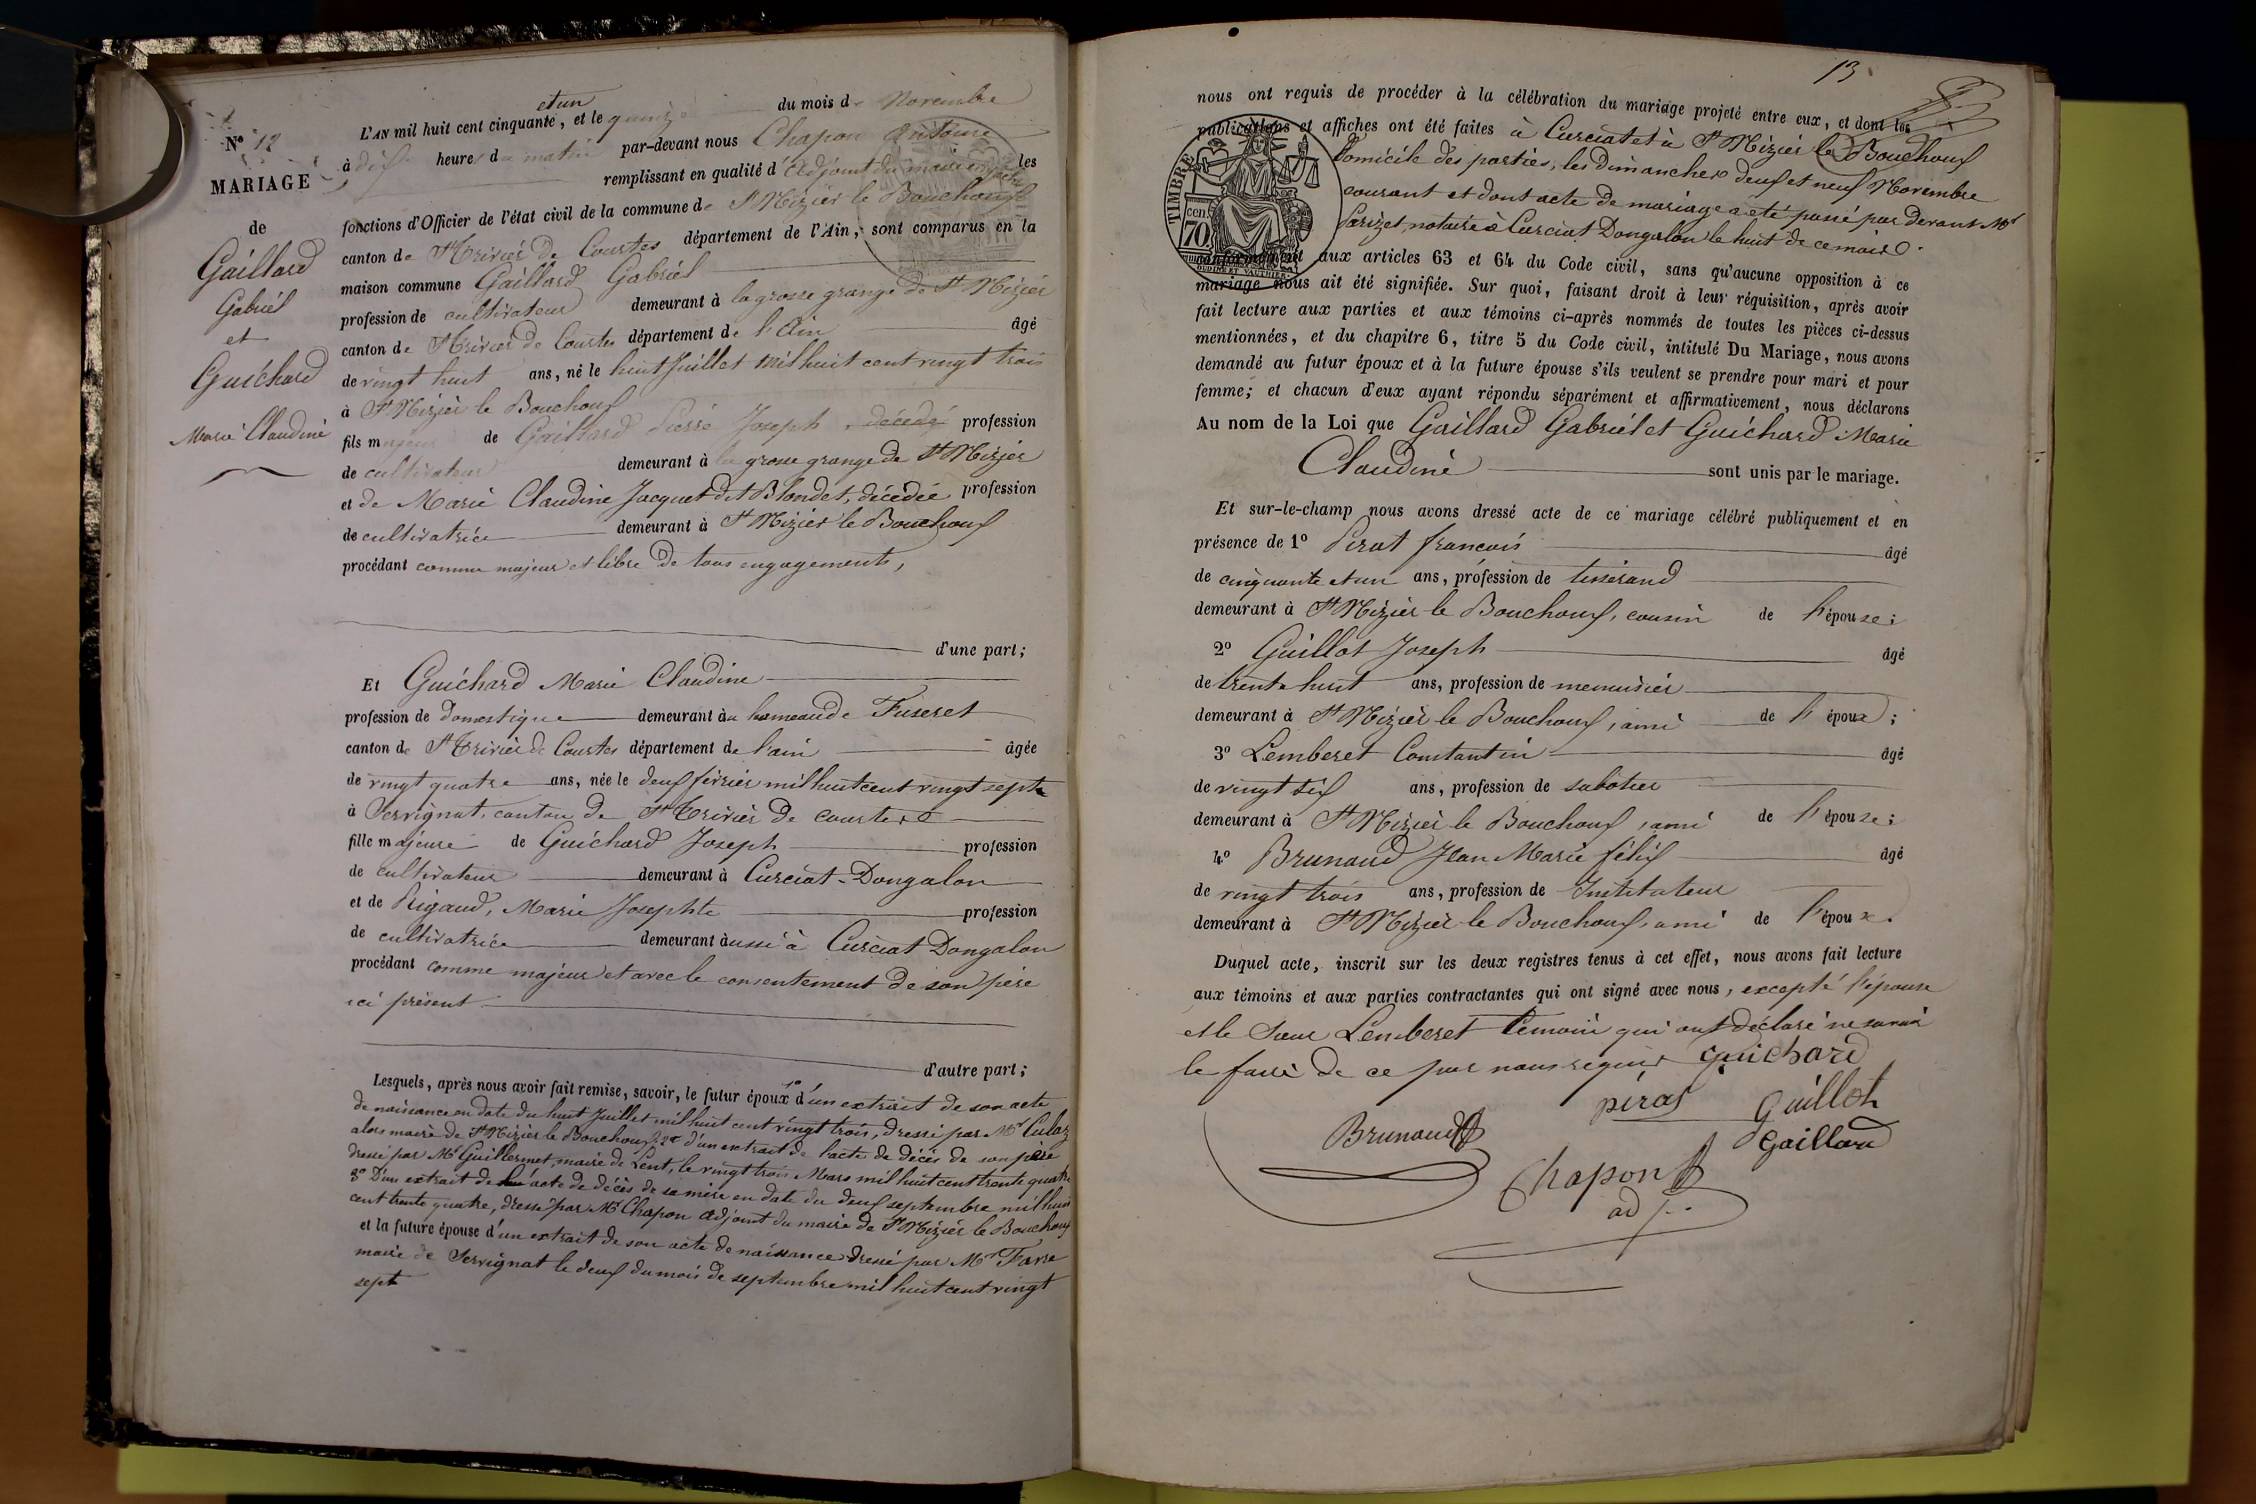 N° 12
MARIAGE
de
Gaillard
Gabriel
et
Guichard
Marie Claudine
et un
L'AN mil huit cent cinquante, et le quinze du mois de Novembre
à dix heures du matin par-devant nous Chapon Antoine
remplissant en qualité d'adjoint du maire les
fonctions d'Officier de l'état civil de la commune de St Nizier le Bouchoux
canton de St Trivier de Courtes département de l'Ain, sont comparus en la
maison commune Gaillard Gabriel
profession de cultivateur demeurant à la grosse grange de St Nizier
canton de St Trivier de Courtes département de l'Ain âgé
de vingt huit ans, né le huit Juillet mil huit cent vingt trois
à St Nizier le Bouchoux
fils majeur de Gaillard Pierre Joseph, décédé profession
de cultivateur demeurant à la grosse grange de St Nizier
et de Marie Claudine Jacquet dit Blondet, décédée profession
de cultivatrice demeurant à St Nizier le Bouchoux
procédant comme majeur et libre de tous engagements,
d'une part;
Et Guichard Marie Claudine
profession de domestique demeurant au hameau de Fuseret
canton de St Trivier de Courtes département de l'ain âgée
de vingt quatre ans, née le deux février mil huit cent vingt sept
à Servignat, canton de St Trivier de courtes
fille majeure de Guichard Joseph profession
de cultivateur demeurant à Curciat-Dongalon
et de Rigaud, Marie Josephte profession
de cultivatrice demeurant aussi à Curciat Dongalon
procédant comme majeur et avec le consentement de son père
ici présent
d'autre part;
Lesquels, après nous avoir fait remise, savoir, le futur époux 1° d'un extrait de son acte
de naissance en date du huit Juillet mil huit cent vingt trois, dressé par Mr Culaz
alors maire de St Nizier le Bouchoux, 2° d'un extrait de l'acte de décès de son père
dressé par Mr Guillermet, maire de Lent, le vingt trois Mars mil huit cent trente quatre
3° D'un extrait de acte de décès de sa mère en date du deux septembre mil huit
cent trente quatre, dressé par Mr Chapon adjoint du maire de St Nizier le Bouchoux
et la future épouse d'un extrait de son acte de naissance dressé par Mr Favre
maire de Servignat le deux du mois de septembre mil huit cent vingt
sept
13
nous ont requis de procéder à la célébration du mariage projeté entre eux, et dont les
publications et affiches ont été faites à Curciat et à St Nizier le Bouchoux
domicile des parties, les dimanches deux et neuf Novembre
courant et dont acte de mariage a été passé par devant Mr
Parizet, notaire à Curciat Dongalon le huit de ce mois
TIMBRE
cen.
70
OUDINÉ ET VAUTHIER
conformément aux articles 63 et 64 du Code civil, sans qu'aucune opposition à ce
mariage nous ait été signifiée. Sur quoi, faisant droit à leur réquisition, après avoir
fait lecture aux parties et aux témoins ci-après nommés de toutes les pièces ci-dessus
mentionnées, et du chapitre 6, titre 5 du Code civil, intitulé Du Mariage, nous avons
demandé au futur époux et à la future épouse s'ils veulent se prendre pour mari et pour
femme; et chacun d'eux ayant répondu séparément et affirmativement, nous déclarons
Au nom de la Loi que Gaillard Gabriel et Guichard Marie
Claudine sont unis par le mariage.
Et sur-le-champ nous avons dressé acte de ce mariage célébré publiquement et en
présence de 1° Perat françois âgé
de cinquante et un ans, profession de tisserand
demeurant à St Nizier le Bouchoux, cousin de l'épouse;
2° Guillot Joseph âgé
de trente huit ans, profession de menuisier
demeurant à St Nizier le Bouchoux, ami de l'époux;
3° Lemberet Constantin âgé
de vingt six ans, profession de sabotier
demeurant à St Nizier le Bouchoux, ami de l'épouse;
4° Brunaud Jean Marie félix âgé
de vingt trois ans, profession de Instituteur
demeurant à St Nizier le Bouchoux, ami de l'époux.
Duquel acte, inscrit sur les deux registres tenus à cet effet, nous avons fait lecture
aux témoins et aux parties contractantes qui ont signé avec nous, excepté l'épouse
et le Sieur Lemberet témoin qui ont déclaré ne savoir
le faire de ce par nous requis Guichard
piras Guillot
Brunaud Gaillard
Chapon
adj.